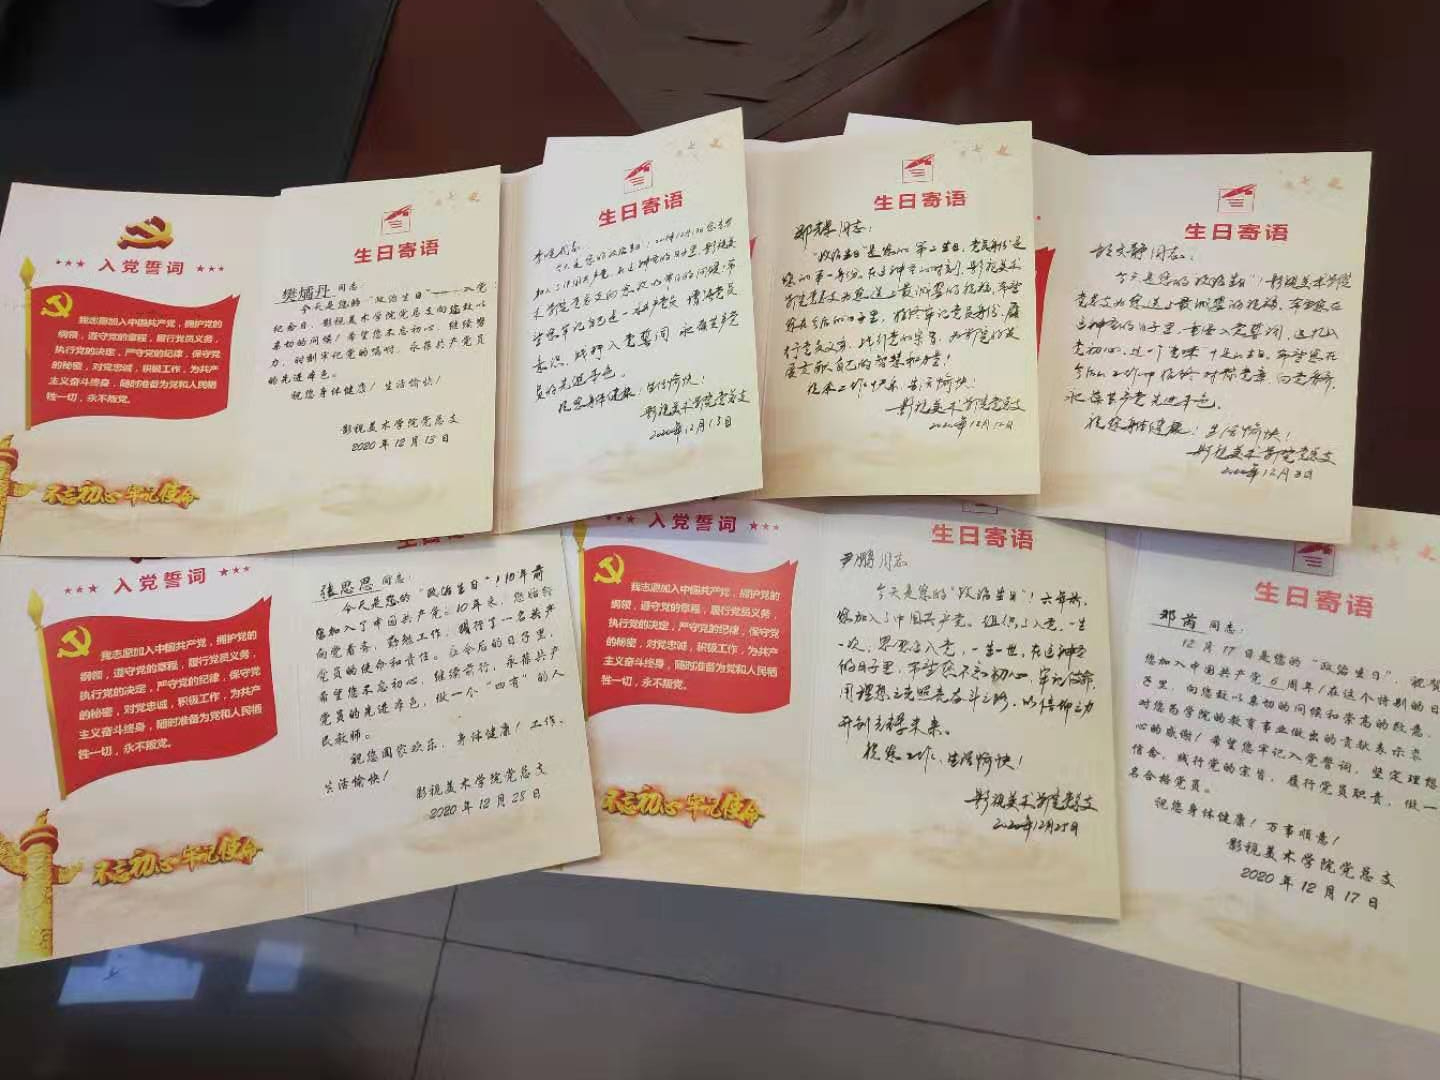 入党誓词
我志愿加入中国共产党，拥护党的
纲领，遵守党的章程，履行党员义务，
执行党的决定，严守党的纪律，保守党
的秘密，对党忠诚，积极工作，为共产
主义奋斗终身，随时准备为党和人民牺
牲一切，永不叛党。
不忘初心 牢记使命
生日寄语
樊燏丹同志：
今天是您的“政治生日”——入党
纪念日，影视美术学院党总支向您致以
亲切的问候！希望您不忘初心，继续努
力，时刻牢记党的嘱咐，永葆共产党员
的先进本色。
祝您身体健康！生活愉快！
影视美术学院党总支
2020年12月13日
生日寄语
同志：
意识，践行入党誓词，永葆共产党
员的先进本色。
祝您身体健康！生活愉快！
影视美术学院党总支
2020年12月13日
生日寄语
邓群同志：
“政治生日”是您的第二生日，党员身份是
您的第一身份。在这神圣的时刻，影视美术
学院党总支为您送上最诚挚的祝福，希望
您在今后的日子里，始终牢记党员身份，履
行党员义务，践行党的宗旨，为学院的发
展贡献自己的智慧和力量！
祝您工作快乐，生活愉快！
影视美术学院党总支
2020年12月12日
生日寄语
同志：
今天是您的“政治生日”，影视美术学院
党总支为您送上最诚挚的祝福，希望您在
这神圣的日子里，重要入党誓词，
永葆共产党先进本色。
祝您身体健康！生活愉快！
影视美术学院党总支
入党誓词
我志愿加入中国共产党，拥护党的
纲领，遵守党的章程，履行党员义务，
执行党的决定，严守党的纪律，保守党
的秘密，对党忠诚，积极工作，为共产
主义奋斗终身，随时准备为党和人民牺
牲一切，永不叛党。
不忘初心 牢记使命
张思思同志：
今天是您的“政治生日”！10年前
您加入了中国共产党。10年来，您始终
向党看齐，勤勉工作，履行了一名共产
党员的使命和责任。在今后的日子里，
希望您不忘初心，继续前行，永葆共产
党员的先进本色，做一个“四有”的人
民教师。
祝您阖家欢乐，身体健康！工作、
生活愉快！
影视美术学院党总支
2020年12月28日
入党誓词
我志愿加入中国共产党，拥护党的
纲领，遵守党的章程，履行党员义务，
执行党的决定，严守党的纪律，保守党
的秘密，对党忠诚，积极工作，为共产
主义奋斗终身，随时准备为党和人民牺
牲一切，永不叛党。
不忘初心 牢记使命
生日寄语
尹鹏同志
今天是您的“政治生日”！六年前，
您加入了中国共产党。组织上入党，一生
一次，思想上入党，一生一世，在这神圣
的日子里，希望您不忘初心，牢记使命，
用理想之光照亮奋斗之路，以信仰之力
开创美好未来。
祝您工作、生活愉快！
影视美术学院党总支
2020年12月25日
生日寄语
邓茜同志：
12月17日是您的“政治生日”，祝贺
您加入中国共产党6周年！在这个特别的日
子里，向您致以亲切的问候和崇高的敬意，
对您为学院的教育事业做出的贡献表示衷
心的感谢！希望您牢记入党誓词，坚定理想
信念，践行党的宗旨，履行党员职责，做一
名合格党员。
祝您身体健康！万事顺意！
影视美术学院党总支
2020年12月17日